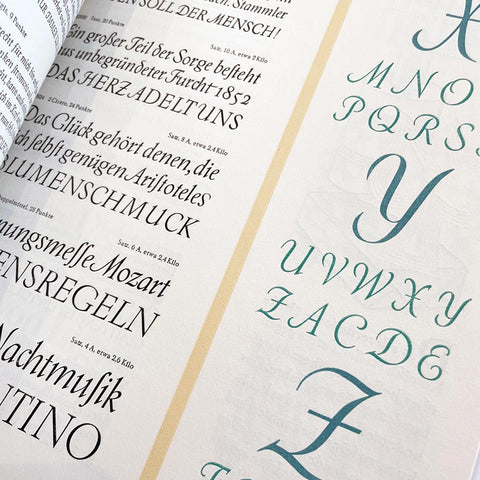 9 Punkte
nach. Stammler
EN SOLL DER MENSCH!
Satz, 10 A, etwa 2 Kilo
in großer Teil der Sorge besteht
us unbegründeter Furcht 1852
DAS HERZ ADELT UNS
2 Cicero, 24 Punkte
Satz, 8 A, etwa 2,4 Kilo
Das Glück gehört denen, die
ch ſelbſt genügen Ariſtoteles
LUMENSCHMUCK
oppelmittel, 28 Punkte
Satz, 6 A, etwa 2,4 Kilo
nungsmeſſe Mozart
ENSREGELN
Satz, 4 A, etwa 2,6 Kilo
Nachtmuſik
NTINO
X
MNO
PQRSS
Y
UVWXY
ZACDE
Z